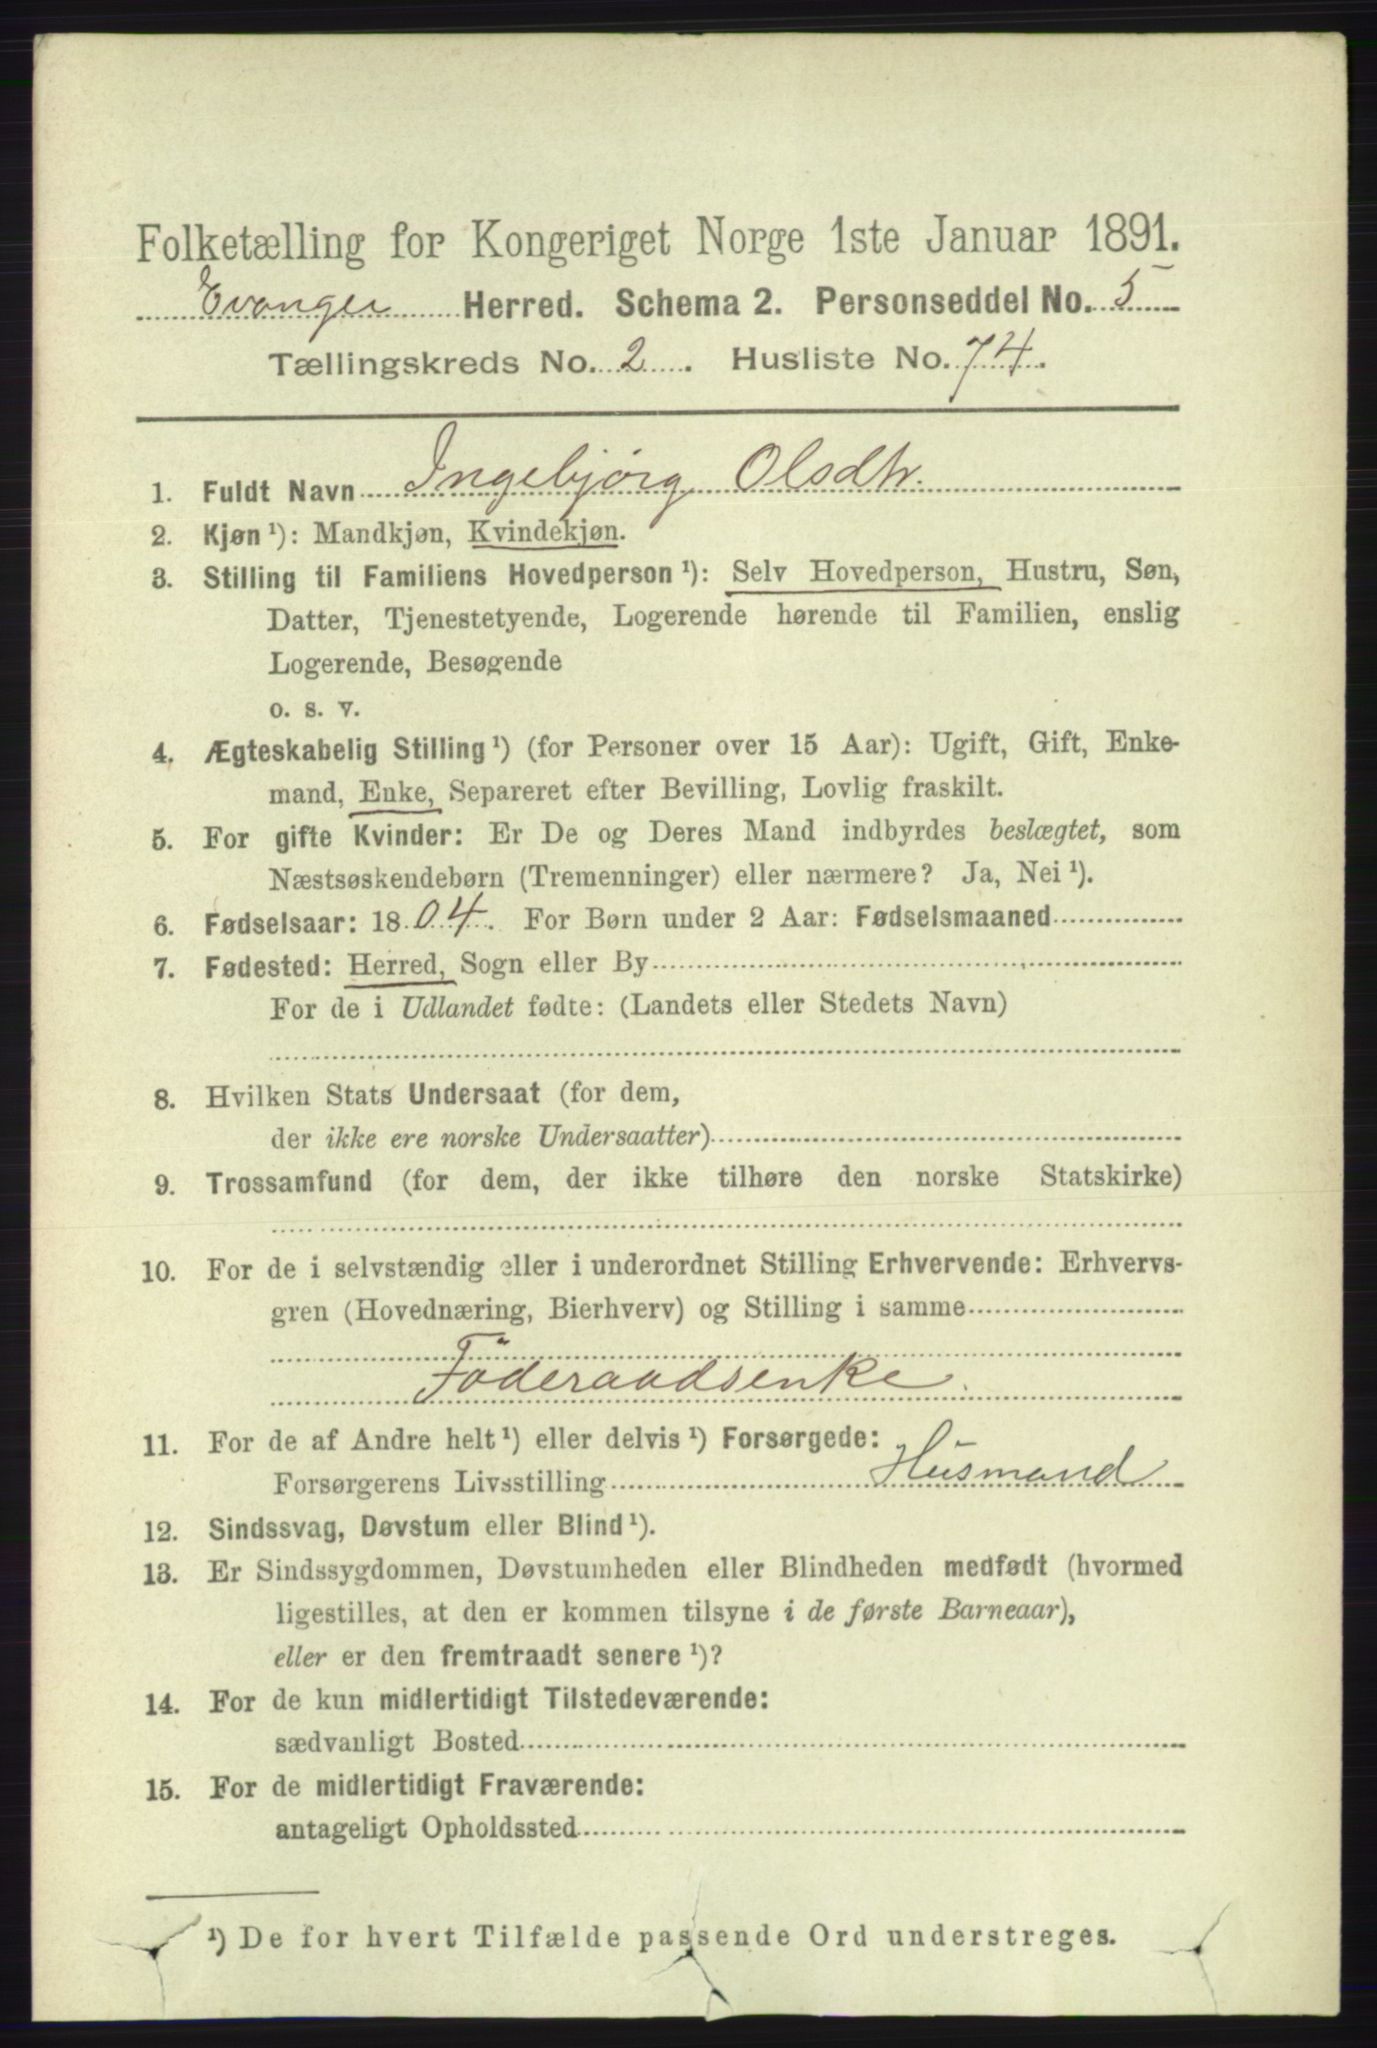 Folketælling for Kongeriget Norge 1ste Januar 1891.
Evanger Herred. Schema 2. Personseddel No. 5
Tællingskreds No. 2. Husliste No. 74.
1. Fuldt Navn Ingebjørg Olsdtr.
2. Kjøn ¹): Mandkjøn, Kvindekjøn.
3. Stilling til Familiens Hovedperson ¹): Selv Hovedperson, Hustru, Søn,
Datter, Tjenestetyende, Logerende hørende til Familien, enslig
Logerende, Besøgende
o. s. v.
4. Ægteskabelig Stilling ¹) (for Personer over 15 Aar): Ugift, Gift, Enke-
mand, Enke, Separeret efter Bevilling, Lovlig fraskilt.
5. For gifte Kvinder: Er De og Deres Mand indbyrdes beslægtet, som
Næstsøskendebørn (Tremenninger) eller nærmere? Ja, Nei ¹).
6. Fødselsaar: 1804. For Børn under 2 Aar: Fødselsmaaned
7. Fødested: Herred, Sogn eller By
For de i Udlandet fødte: (Landets eller Stedets Navn)
8. Hvilken Stats Undersaat (for dem,
der ikke ere norske Undersaatter)
9. Trossamfund (for dem, der ikke tilhøre den norske Statskirke)
10. For de i selvstændig eller i underordnet Stilling Erhvervende: Erhvervs-
gren (Hovednæring, Bierhverv) og Stilling i samme
Föderaadsenke.
11. For de af Andre helt ¹) eller delvis ¹) Forsørgede:
Forsørgerens Livsstilling Husmand
12. Sindssvag, Døvstum eller Blind ¹).
13. Er Sindssygdommen, Døvstumheden eller Blindheden medfødt (hvormed
ligestilles, at den er kommen tilsyne i de første Barneaar),
eller er den fremtraadt senere ¹)?
14. For de kun midlertidigt Tilstedeværende:
sædvanligt Bosted
15. For de midlertidigt Fraværende:
antageligt Opholdssted
¹) De for hvert Tilfælde passende Ord understreges.